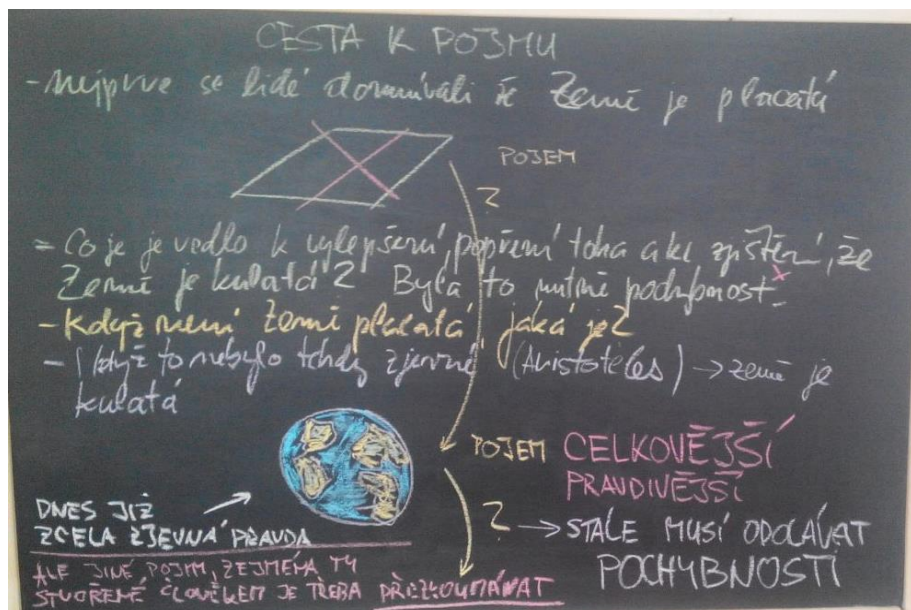 CESTA K POJMU
- nejprve se lidé domnívali že Země je placatá
POJEM
?
= Co je je vedlo k vylepšení, popření toha a ke zjištění, že
Země je kulatá? Byla to nutně pochybnost.
- Když není Země placatá, jaká je?
- I když to nebylo tehdy zjevné (Aristotéles) → země je
kulatá
POJEM CELKOVĚJŠÍ
PRAVDIVĚJŠÍ
DNES JIŽ
ZCELA ZJEVNÁ PRAVDA
? → STÁLE MUSÍ ODOLÁVAT
POCHYBNOSTI
ALE JINÉ POJMY, ZEJMÉNA TY
STVOŘENÉ ČLOVĚKEM JE TŘEBA PŘEZKOUMÁVAT